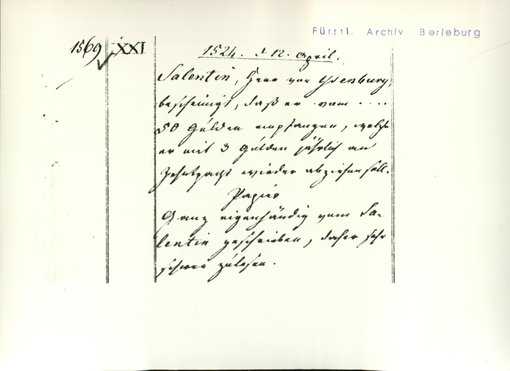 Fürstl. Archiv Berleburg
1569 XXI 1524. d 12. April.
Salentin, Herr von Ysenburg,
bescheinigt, daß er vom ....
50 Gulden empfangen, welche
er mit 3 Gulden jährlich an
Zehntpacht wieder abziehen soll.
Papier
Ganz eigenhändig vom Sa-
lentin geschrieben, daher sehr
schwer zu lesen.